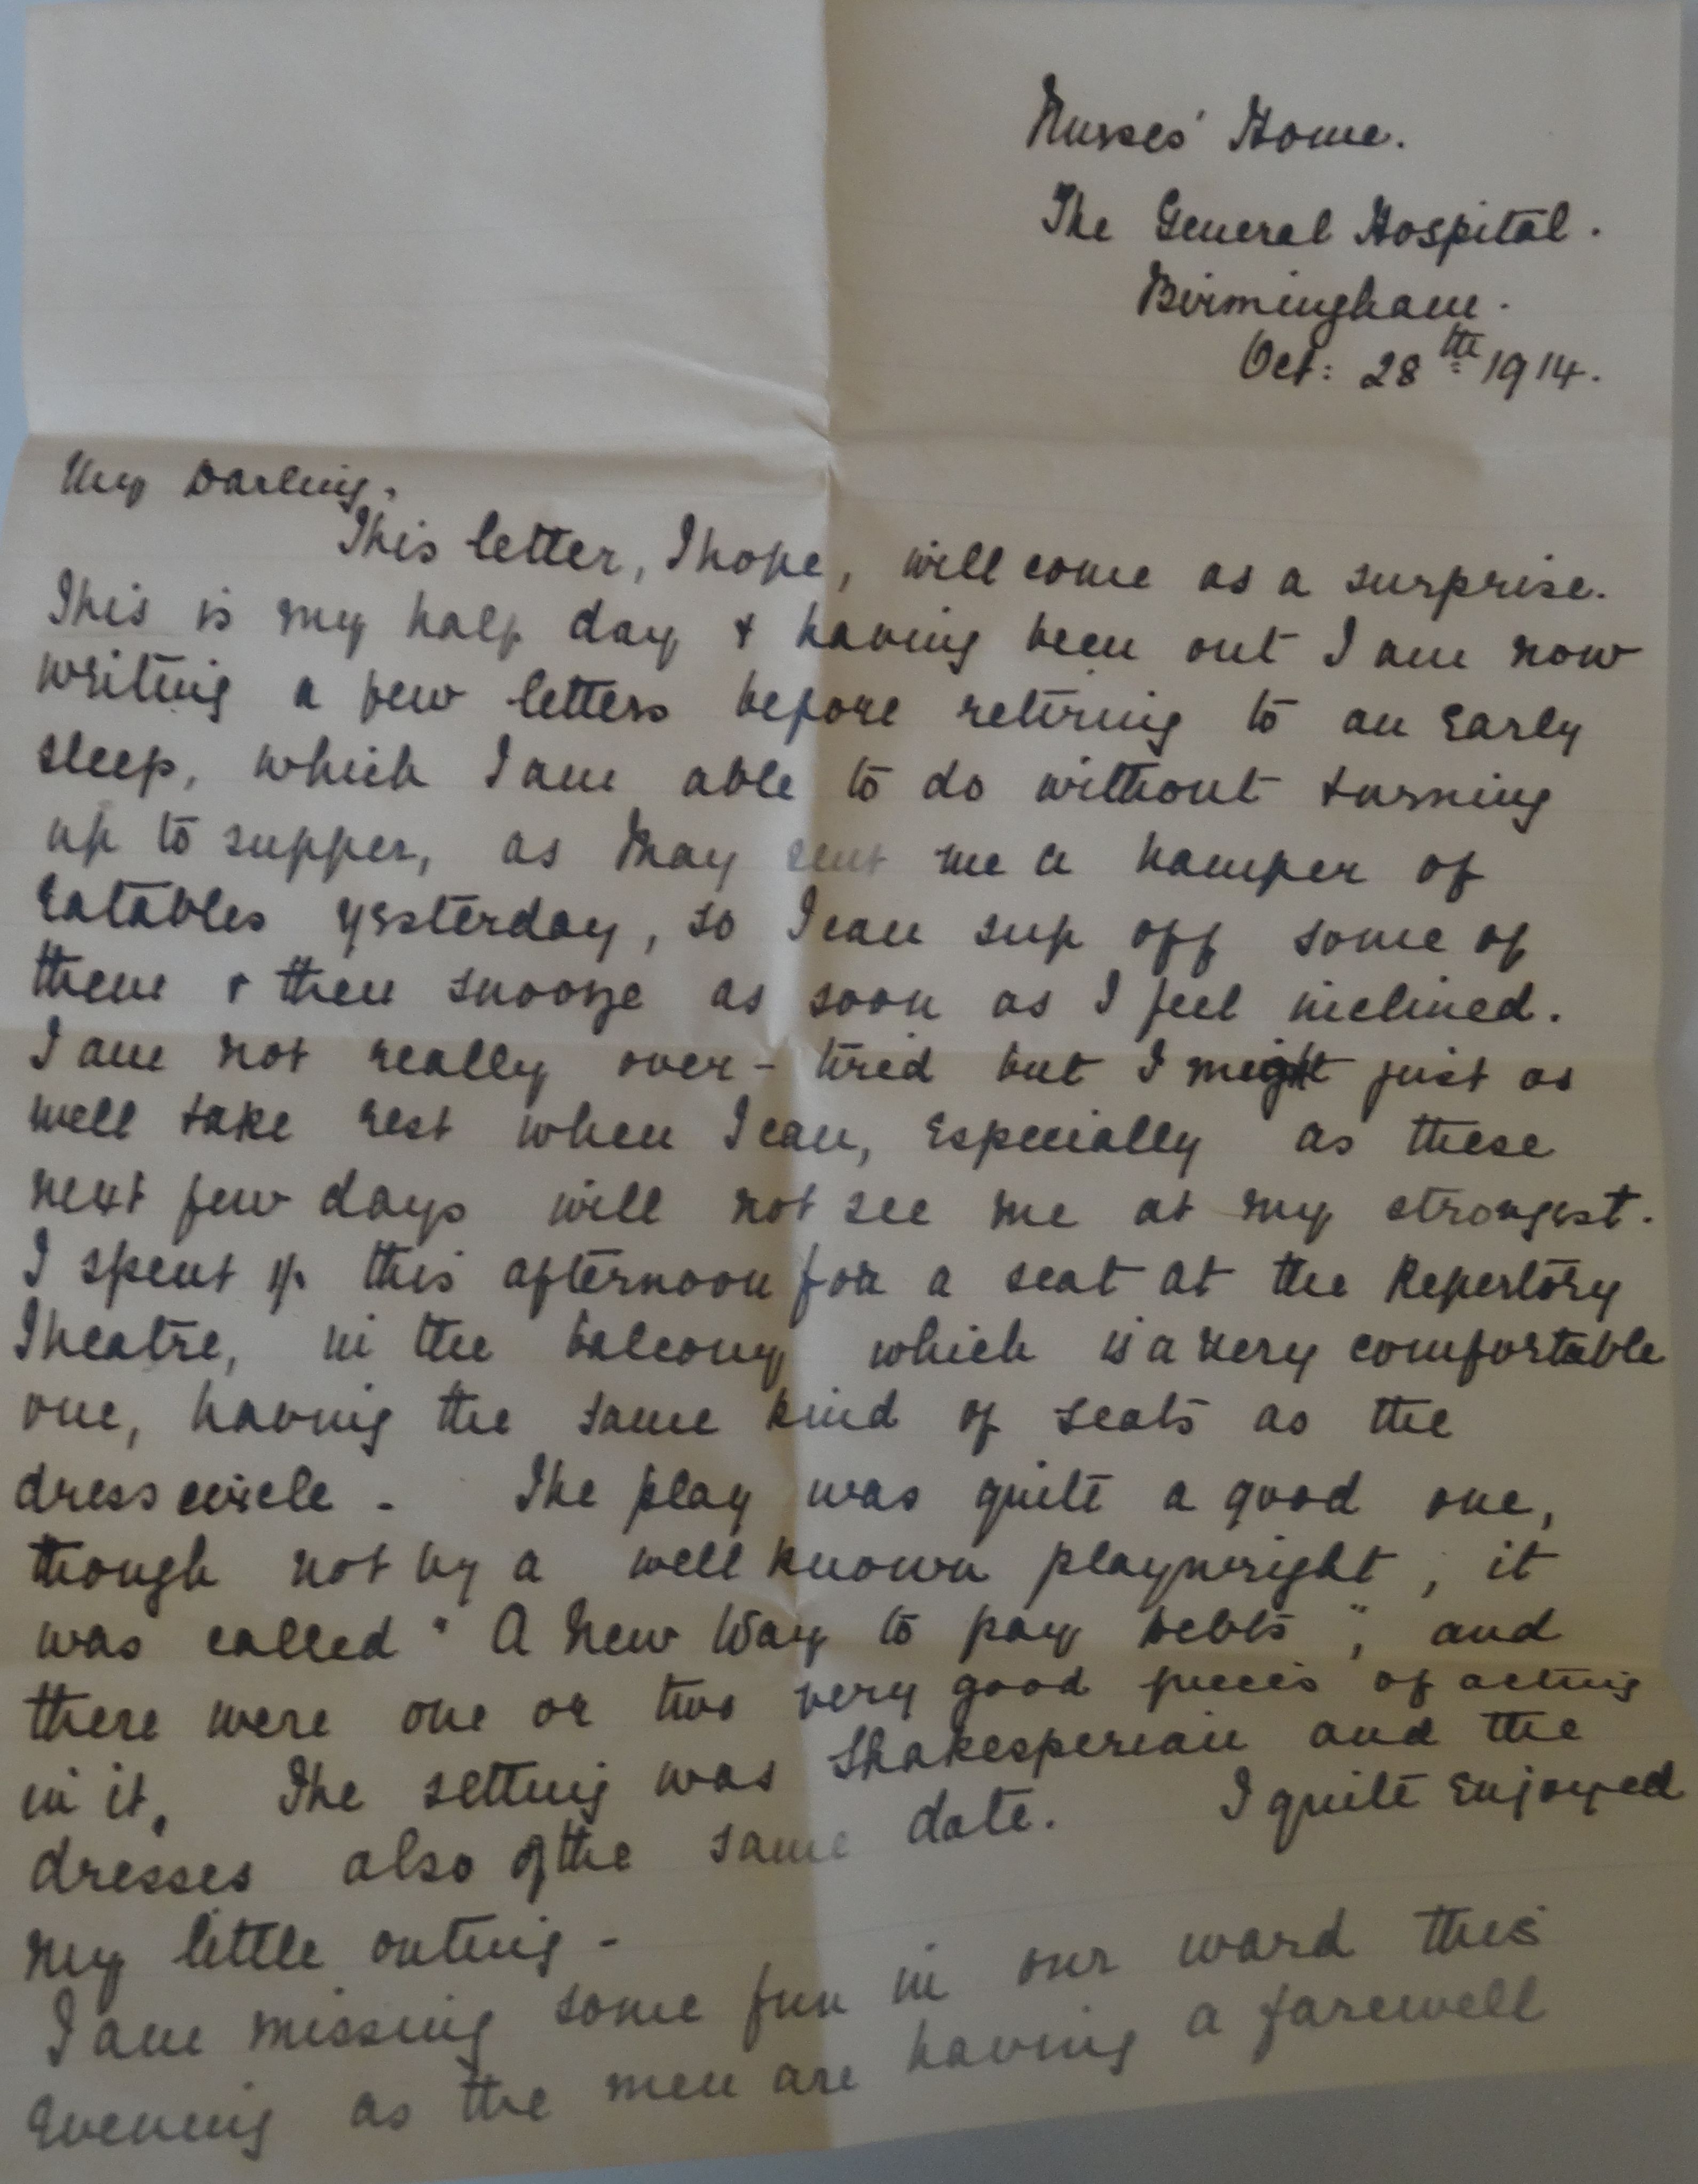 Nurses' Home.
The General Hospital.
Birmingham.
Oct: 28th 1914.
My Darling,
This letter, I hope, will come as a surprise.
This is my half day & having been out I am now
writing a few letters before retiring to an early
sleep, which I am able to do without turning
up to supper, as May sent me a hamper of
eatables yesterday, so I can sup off some of
them & then snooze as soon as I feel inclined.
I am not really over-tired but I might just as
well take rest when I can, especially as these
next few days will not see me at my strongest.
I spent 1/- this afternoon for a seat at the Repertory
Theatre, in the balcony which is a very comfortable
one, having the same kind of seats as the
dress circle - The play was quite a good one,
though not by a well known playwright, it
was called "A New Way to pay Debts", and
there were one or two very good pieces of acting
in it. The setting was Shakesperian and the
dresses also of the same date. I quite enjoyed
my little outing -
I am missing some fun in our ward this
evening as the men are having a farewell